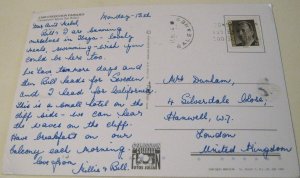 Monday - 13th
Dear Aunt Mabel
Bill & I are sunning
ourselves in - lovely
walks, swimming - wish you
could be here too.
We have two more days and
then Bill heads for Sweden
and I head for California
This is a small hotel on the
cliff side - we can hear
the waves on the cliff.
Have breakfast on our
balcony each morning -
Love from
& Bill.
Mrs Dunham,
4 Silverdale Close,
Hanwell, W.7.
London
United Kingdom